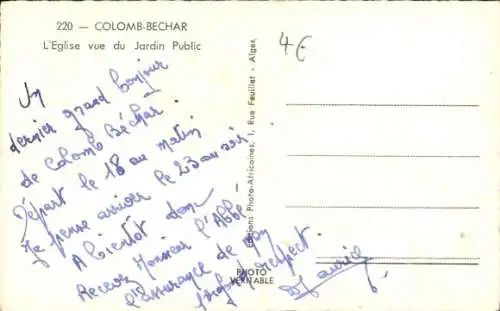 220 — COLOMB-BECHAR
L'Eglise vue du Jardin Public
4€
Un
dernier grand bonjour
de Colomb Béchar.
Départ le 18 au matin
Je pense arriver le 23 au soir
A bientôt donc
Recevez Monsieur l'Abbé
l'assurance de mon
profond respect.
Editions Photo-Africaines, 1, Rue Feuillet - Alger.
PHOTO
VERITABLE